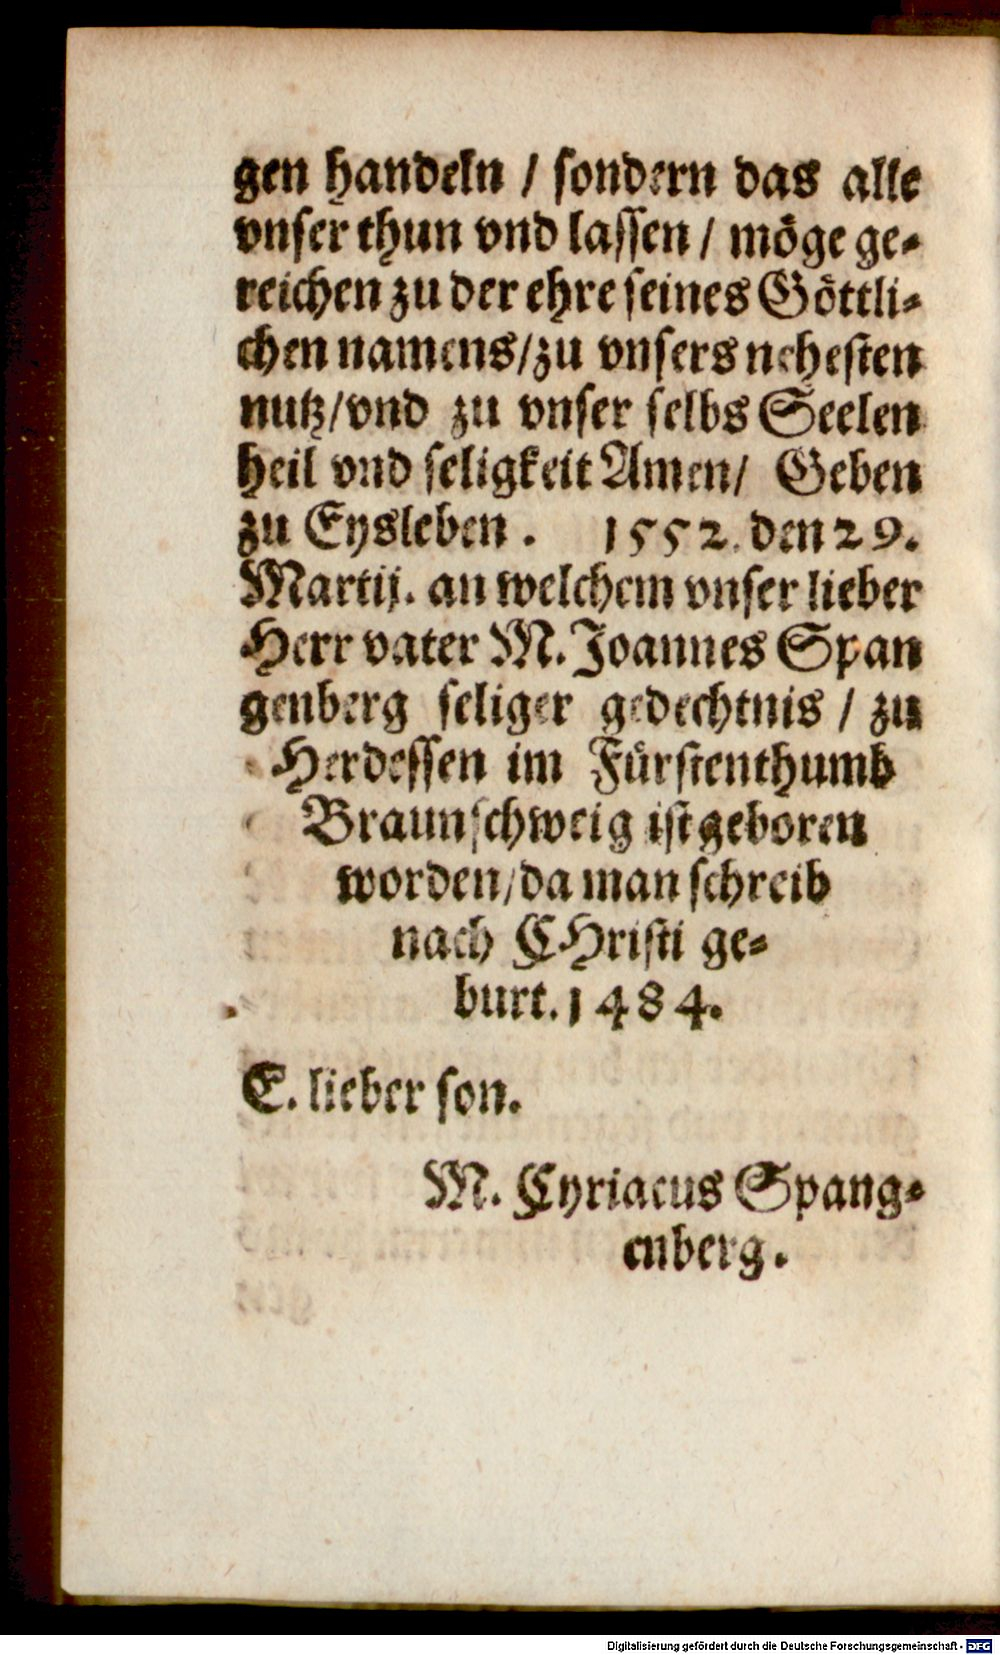 gen handeln / sondern das alle
vnser thun vnd lassen / möge ge-
reichen zu der ehre seines Göttli-
chen namens/zu vnsers nehesten
nutz/vnd zu vnser selbs Seelen
heil vnd seligkeit Amen/ Geben
zu Eysleben . 1552. den 29.
Martij. an welchem vnser lieber
Herr vater M. Joannes Span
genberg seliger gedechtnis / zu
Herdessen im Fürstenthumb
Braunschweig ist geboren
worden/da man schreib
nach CHristi ge-
burt. 1484.
E. lieber son.
M. Cyriacus Spang-
enberg.
Digitalisierung gefördert durch die Deutsche Forschungsgemeinschaft - DFG